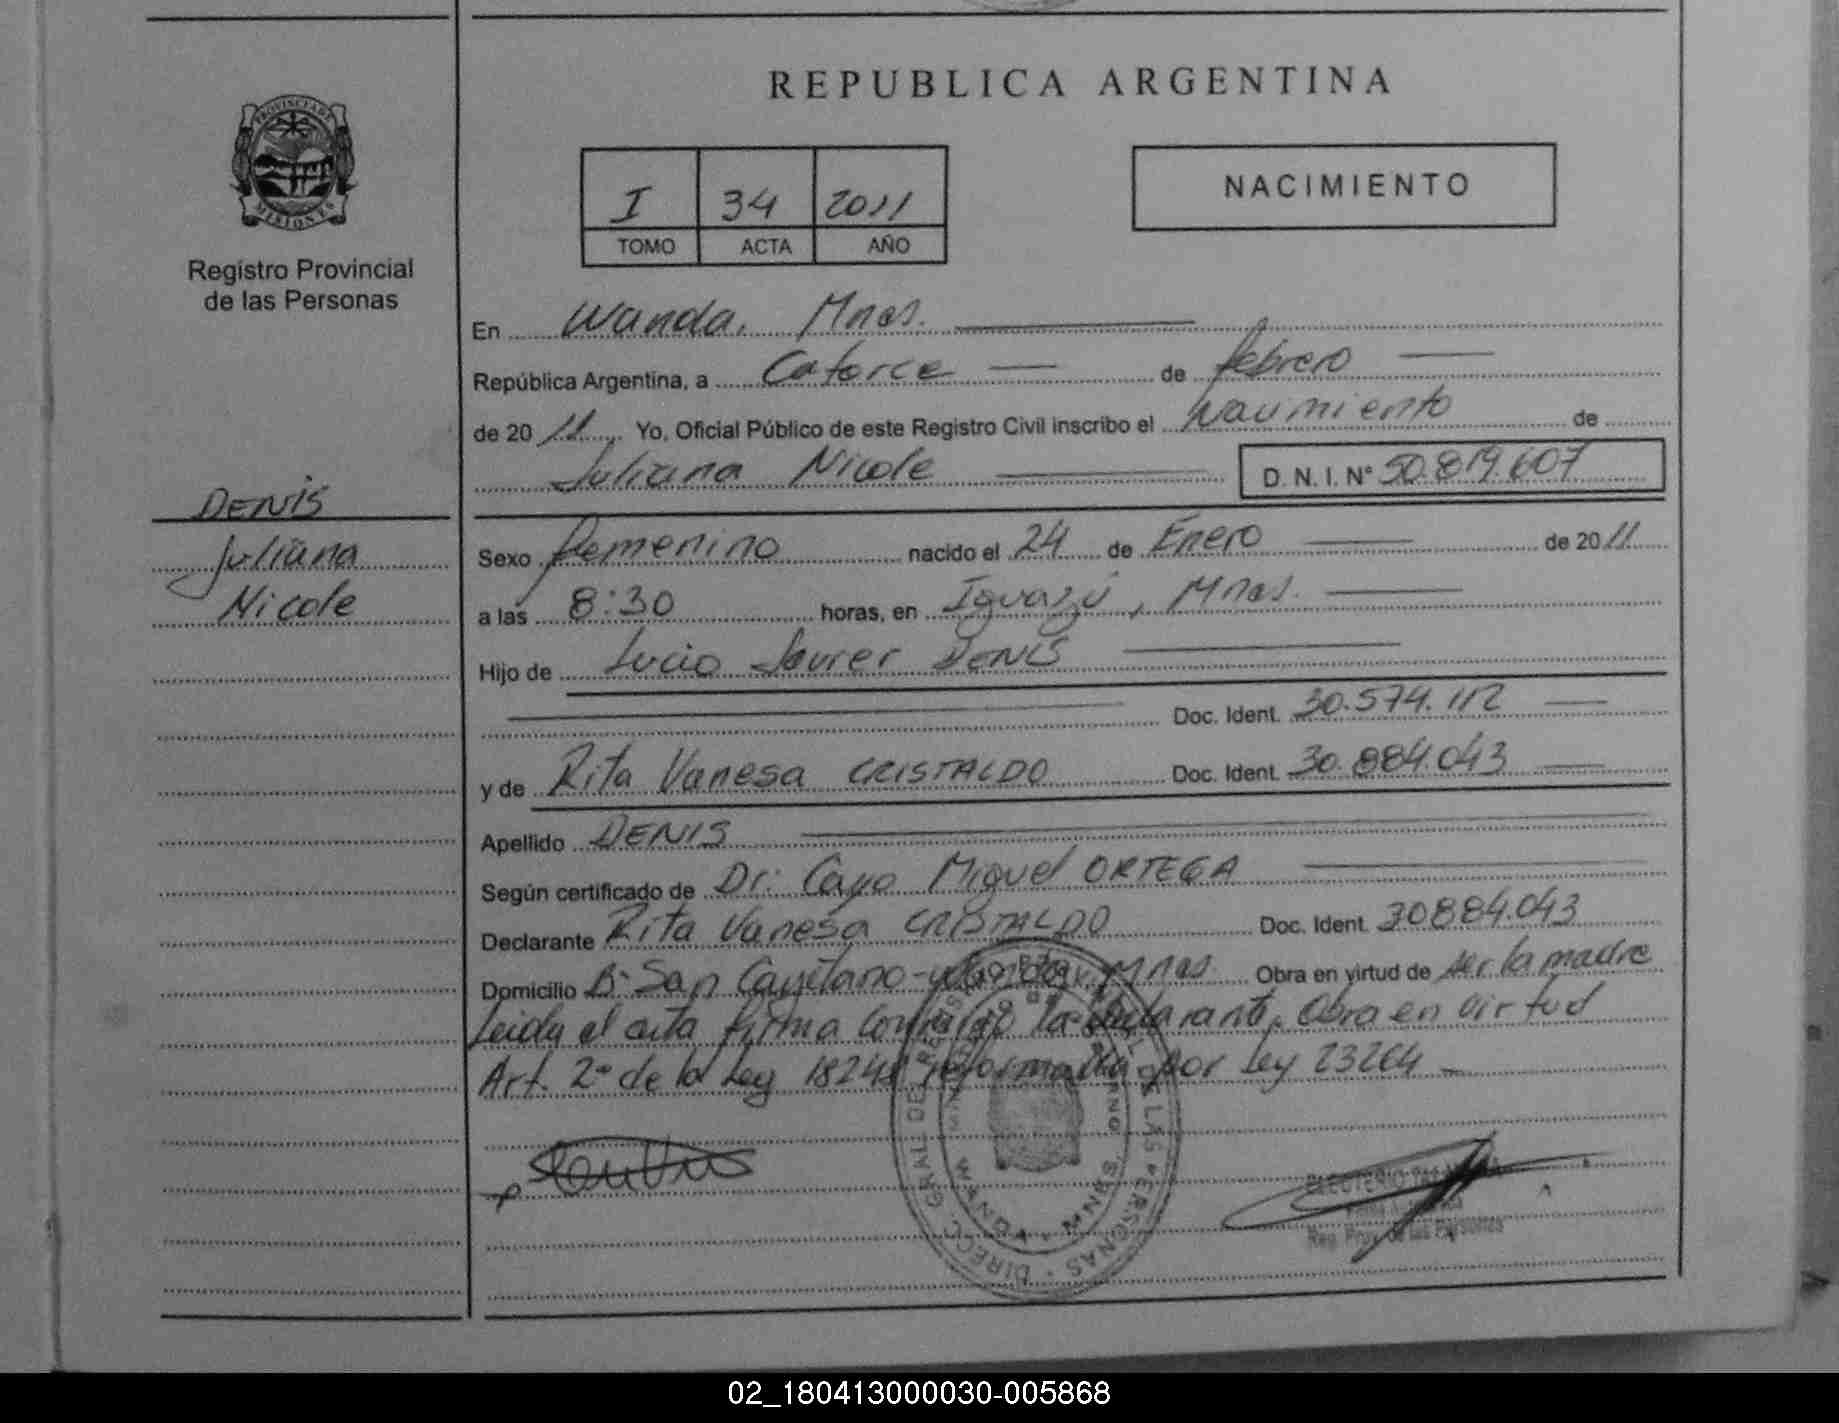 REPUBLICA ARGENTINA
PROVINCIA DE
MISIONES
Registro Provincial
de las Personas
I 34 2011
TOMO ACTA AÑO
NACIMIENTO
En Wanda, Mnes.
República Argentina, a Catorce de febrero
de 20 11 Yo, Oficial Público de este Registro Civil inscribo el Nacimiento de
Juliana Nicole D. N. I. Nº 50.819.607
DENIS
Juliana
Nicole
Sexo femenino nacido el 24 de Enero de 20 11
a las 8:30 horas, en Iguazú, Mnes.
Hijo de Lucio Javier DENIS
Doc. Ident. 30.574.112
y de Rita Vanesa CRISTALDO Doc. Ident. 30.884.043
Apellido DENIS
Según certificado de Dr. Cayo Miguel ORTEGA
Declarante Rita Vanesa CRISTALDO Doc. Ident. 30884.043
Domicilio Bº San Cayetano - Wanda, Mnes Obra en virtud de ser la madre
Leida el acta firma conmigo la declarante, Obra en virtud
Art. 2º de la Ley 18248 reformada por Ley 23264
DIRECC. GRAL DE REGISTRO PROVINCIAL DE LAS PERSONAS
WANDA - MNES.
Reg. Prov. de las Personas
02_180413000030-005868